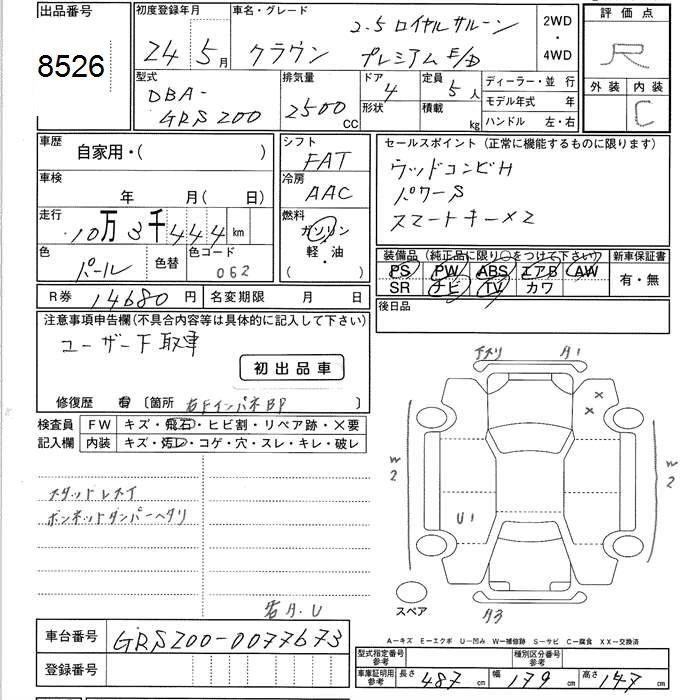 出品番号
8526
初度登録年月
24 5月
車名・グレード
2.5 ロイヤルサルーン
クラウン プレミアムE/D
2WD
・
4WD
評価点
R
外装 内装
C
型式
DBA-
GRS200
排気量
2500 CC
ドア
4
形状
定員
5人
積載
kg
ディーラー・並 行
モデル年式 年
ハンドル 左・右
車歴
自家用・( )
車検
年 月( 日)
走行
10万3千444km
色
パール
色替
色コード
062
シフト
FAT
冷房
AAC
燃料
ガソリン
軽・油
( ・ )
セールスポイント (正常に機能するものに限ります)
ウッドコンビH
パワーS
スマートキー×2
装備品 (純正品に限り○をつけて下さい)
PS PW ABS エアB AW
SR ナビ TV カワ
新車保証書
有・無
後日品
R券 14680円
名変期限 月 日
注意事項申告欄(不具合内容等は具体的に記入して下さい)
ユーザー下取車
初出品車
修復歴 有 〔箇所 右FインパネBP 〕
検査員
記入欄
FW キズ・飛石・ヒビ割・リペア跡・×要
内装 キズ・汚レ・コゲ・穴・スレ・キレ・破レ
スタッドレスタイ
ボンネットダンパーヘタリ
A1
×
×
W
2
W
2
U1
スペア
A3
A-キズ E-エクボ U-凹み W-補修跡 S-サビ C-腐食 XX-交換済
車台番号 GRS200-0077673
登録番号
型式指定番号
参考
種別区分番号
参考
車庫証明用
参考
長さ 487cm 幅 179cm 高さ 147cm